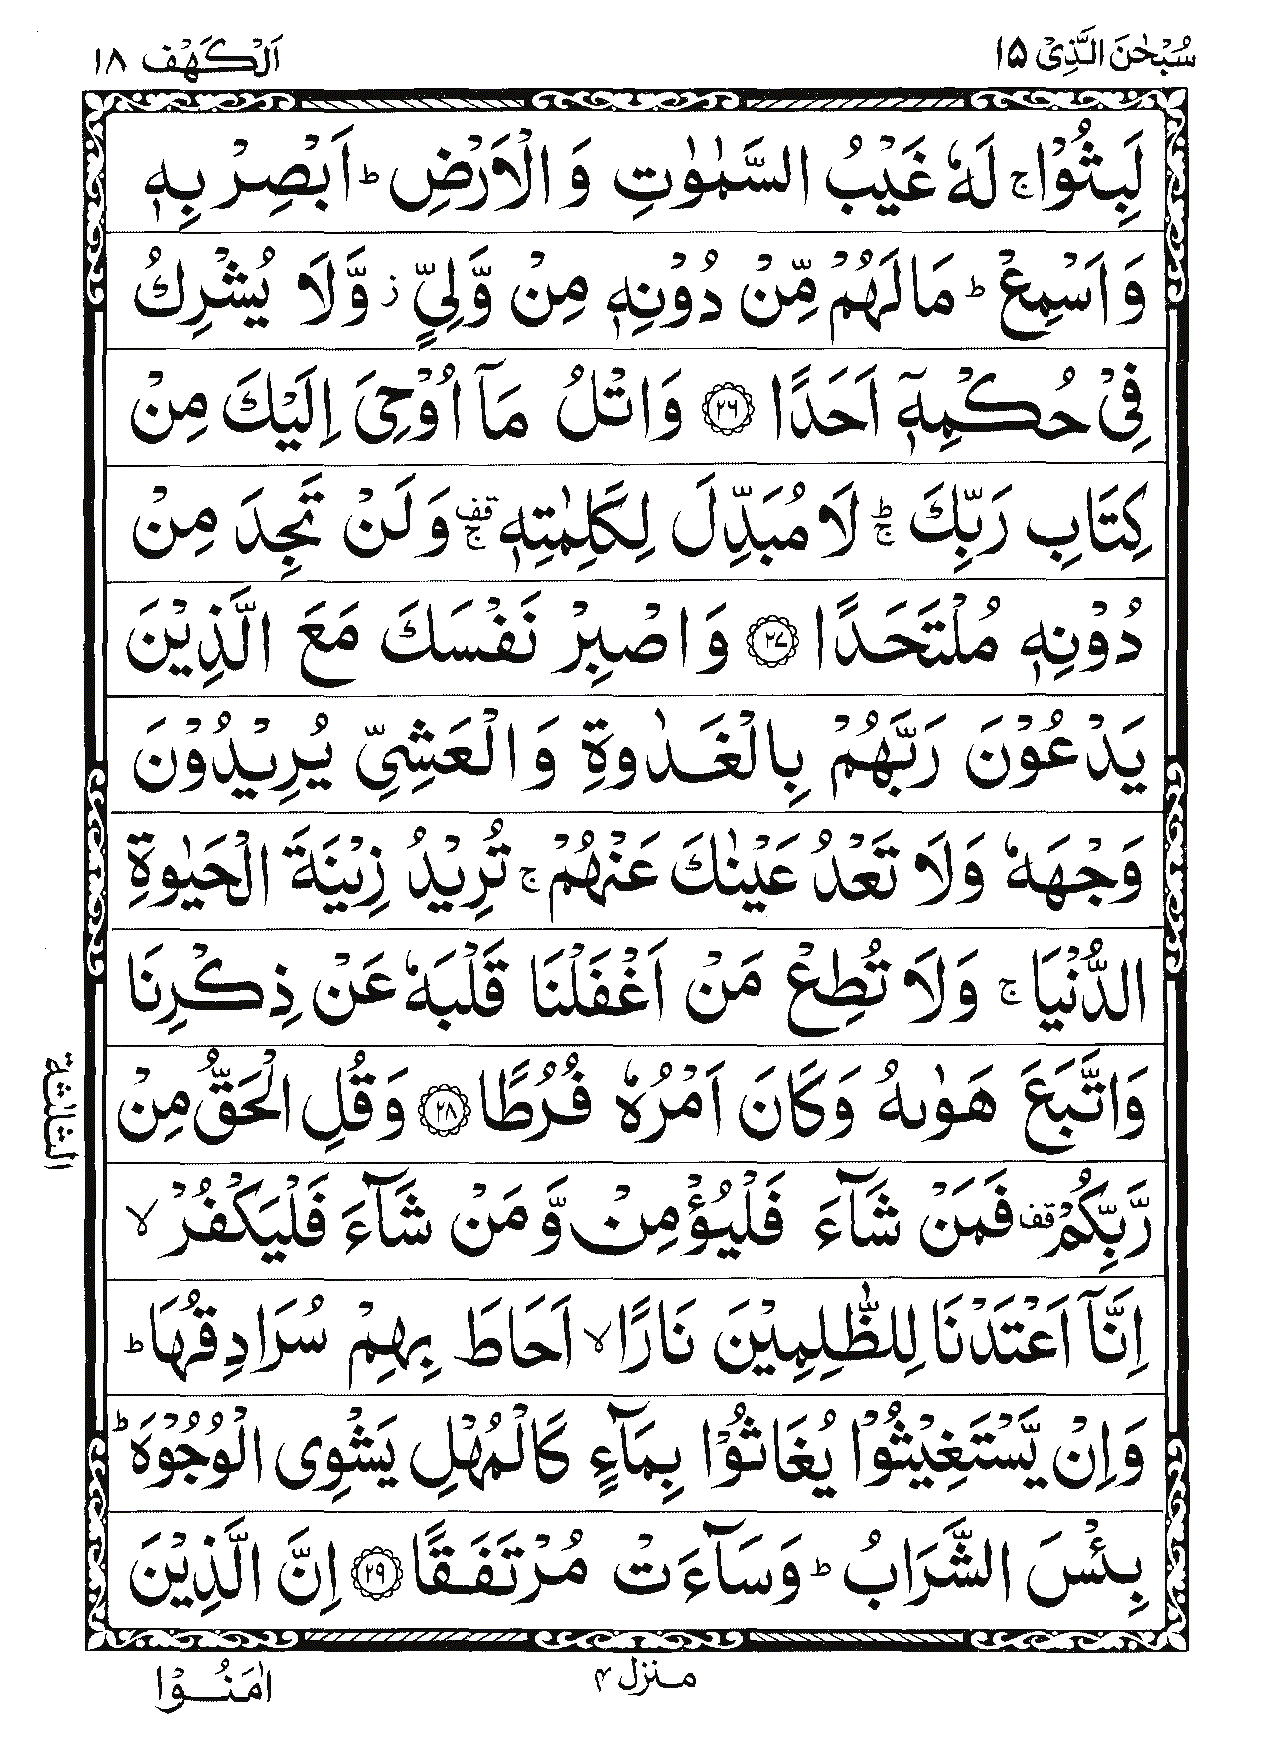 سُبْحٰنَ الَّذِیْۤ ۱۵
اَلْكَهْف ۱۸
لَبِثُوْا ۚ لَهٗ غَیْبُ السَّمٰوٰتِ وَ الْاَرْضِ ؕ اَبْصِرْ بِهٖ
وَ اَسْمِعْ ؕ مَا لَهُمْ مِّنْ دُوْنِهٖ مِنْ وَّلِیٍّ ز وَّ لَا یُشْرِكُ
فِیْ حُكْمِهٖۤ اَحَدًا ۲۶ وَ اتْلُ مَاۤ اُوْحِیَ اِلَیْكَ مِنْ
كِتَابِ رَبِّكَ ؕۚ لَا مُبَدِّلَ لِكَلِمٰتِهٖ قف ۚ وَ لَنْ تَجِدَ مِنْ
دُوْنِهٖ مُلْتَحَدًا ۲۷ وَ اصْبِرْ نَفْسَكَ مَعَ الَّذِیْنَ
یَدْعُوْنَ رَبَّهُمْ بِالْغَدٰوةِ وَ الْعَشِیِّ یُرِیْدُوْنَ
وَجْهَهٗ وَ لَا تَعْدُ عَیْنٰكَ عَنْهُمْ ۚ تُرِیْدُ زِیْنَةَ الْحَیٰوةِ
الدُّنْیَا ۚ وَ لَا تُطِعْ مَنْ اَغْفَلْنَا قَلْبَهٗ عَنْ ذِكْرِنَا
وَ اتَّبَعَ هَوٰىهُ وَ كَانَ اَمْرُهٗ فُرُطًا ۲۸ وَ قُلِ الْحَقُّ مِنْ
الثالثة
رَّبِّكُمْ قف فَمَنْ شَآءَ فَلْیُؤْمِنْ وَّ مَنْ شَآءَ فَلْیَكْفُرْ ۙ
اِنَّاۤ اَعْتَدْنَا لِلظّٰلِمِیْنَ نَارًا ۙ اَحَاطَ بِهِمْ سُرَادِقُهَا ؕ
وَ اِنْ یَّسْتَغِیْثُوْا یُغَاثُوْا بِمَآءٍ كَالْمُهْلِ یَشْوِی الْوُجُوْهَ ؕ
بِئْسَ الشَّرَابُ ؕ وَ سَآءَتْ مُرْتَفَقًا ۲۹ اِنَّ الَّذِیْنَ
منزل ۴
اٰمَنُوْا